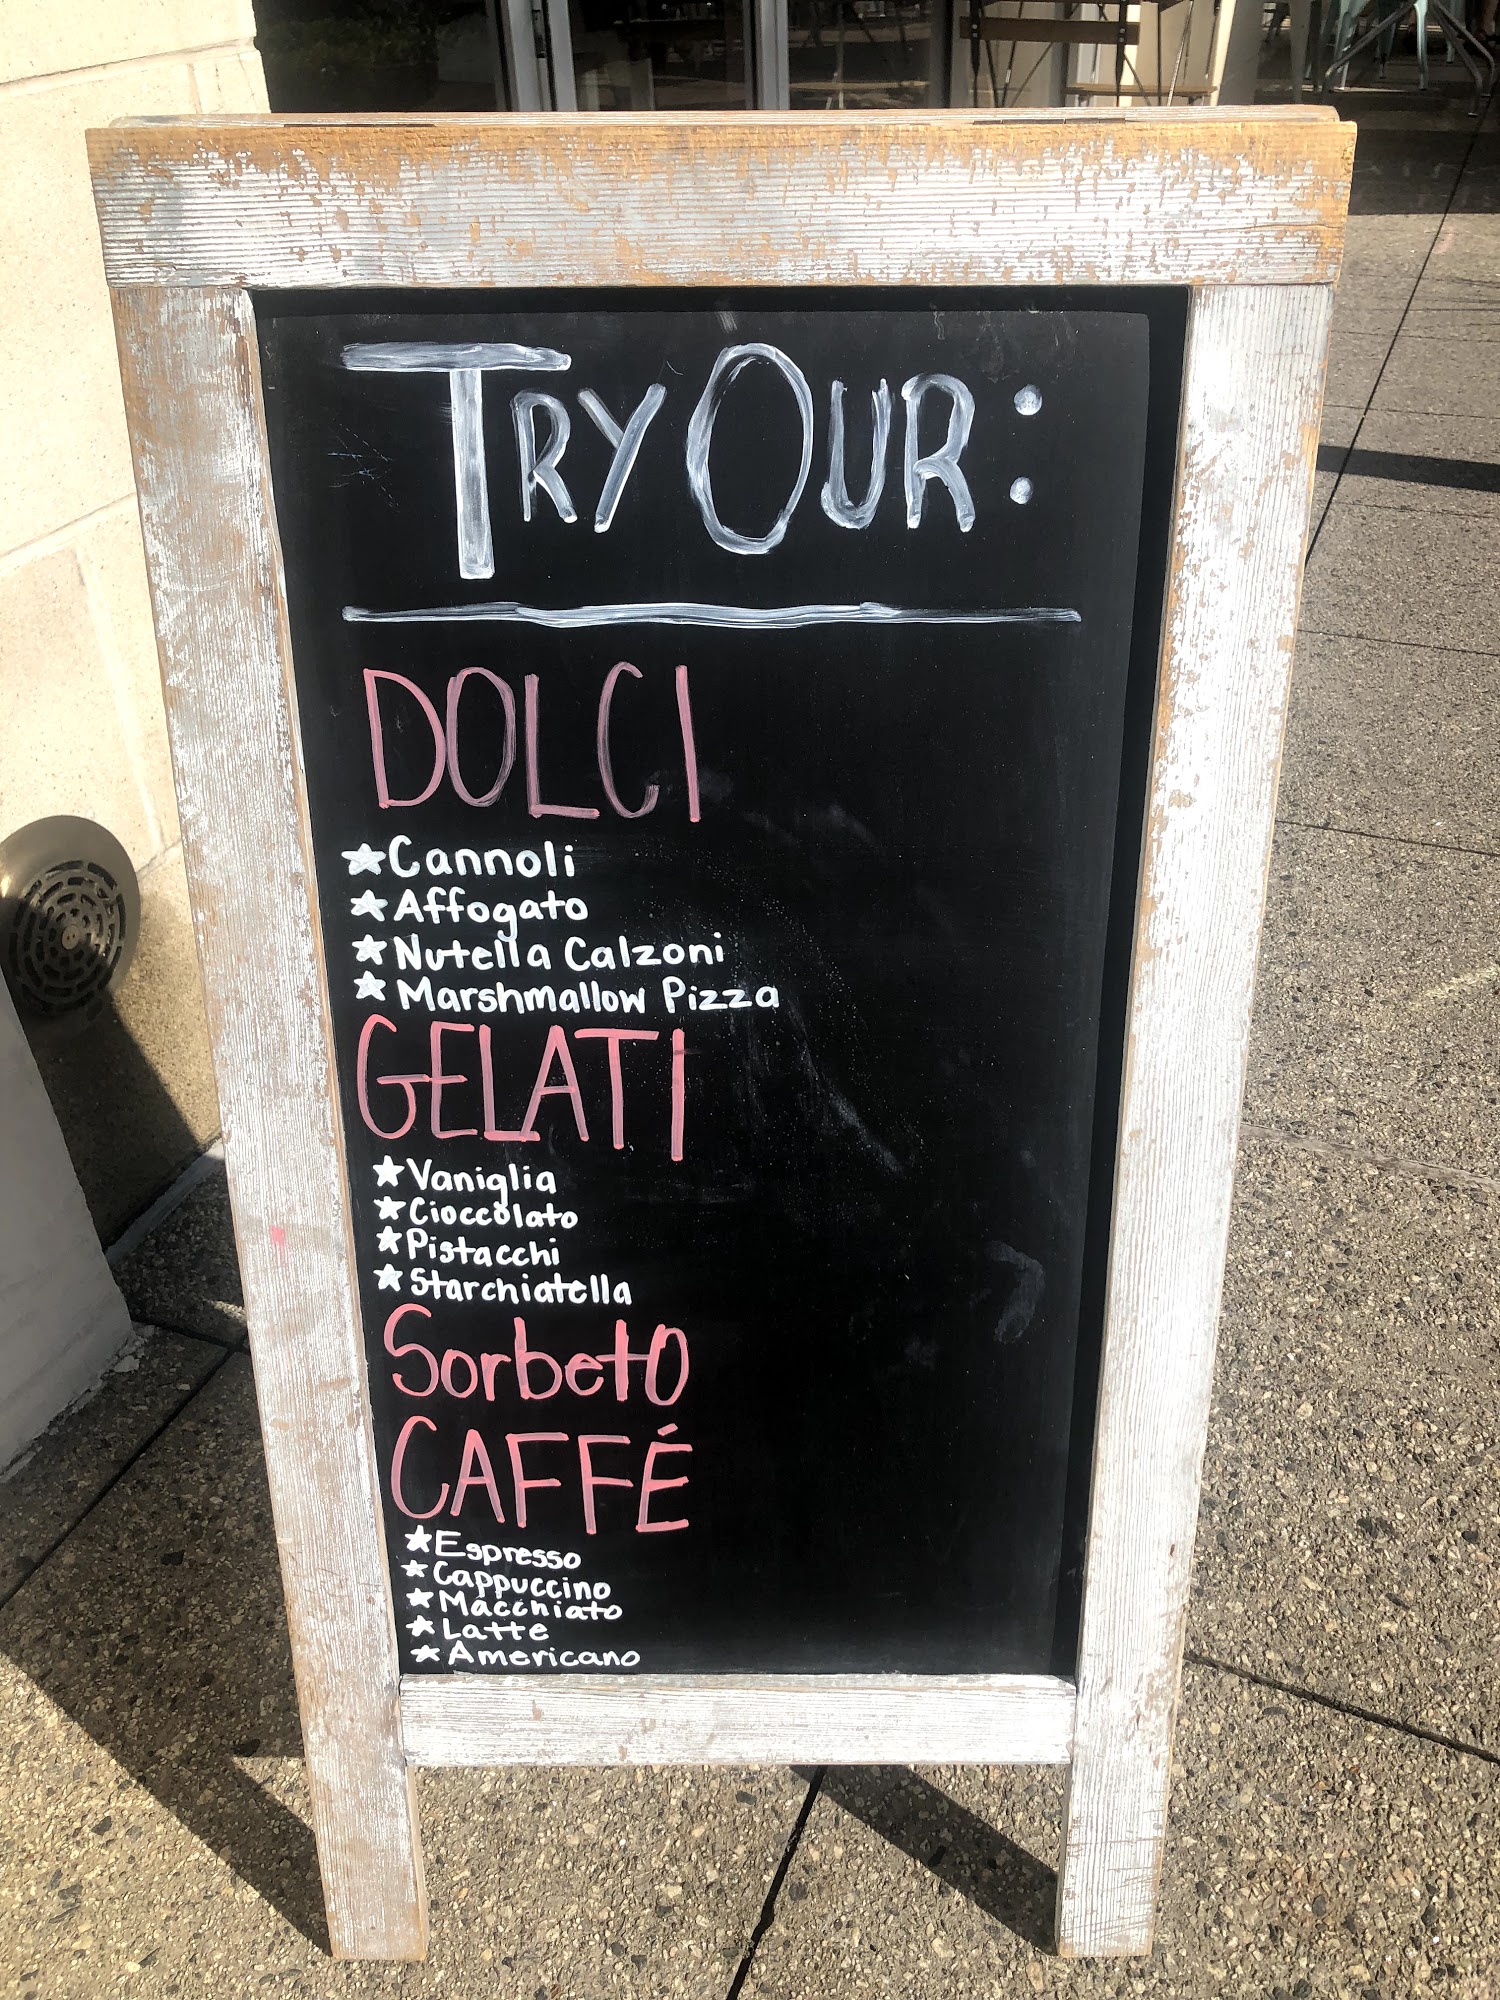 TRY OUR:
DOLCI
★Cannoli
★Affogato
★Nutella Calzoni
★Marshmallow Pizza
GELATI
★Vaniglia
★Cioccolato
★Pistacchi
★Starchiatella
Sorbeto
CAFFÉ
★Espresso
★Cappuccino
★Macchiato
★Latte
★Americano